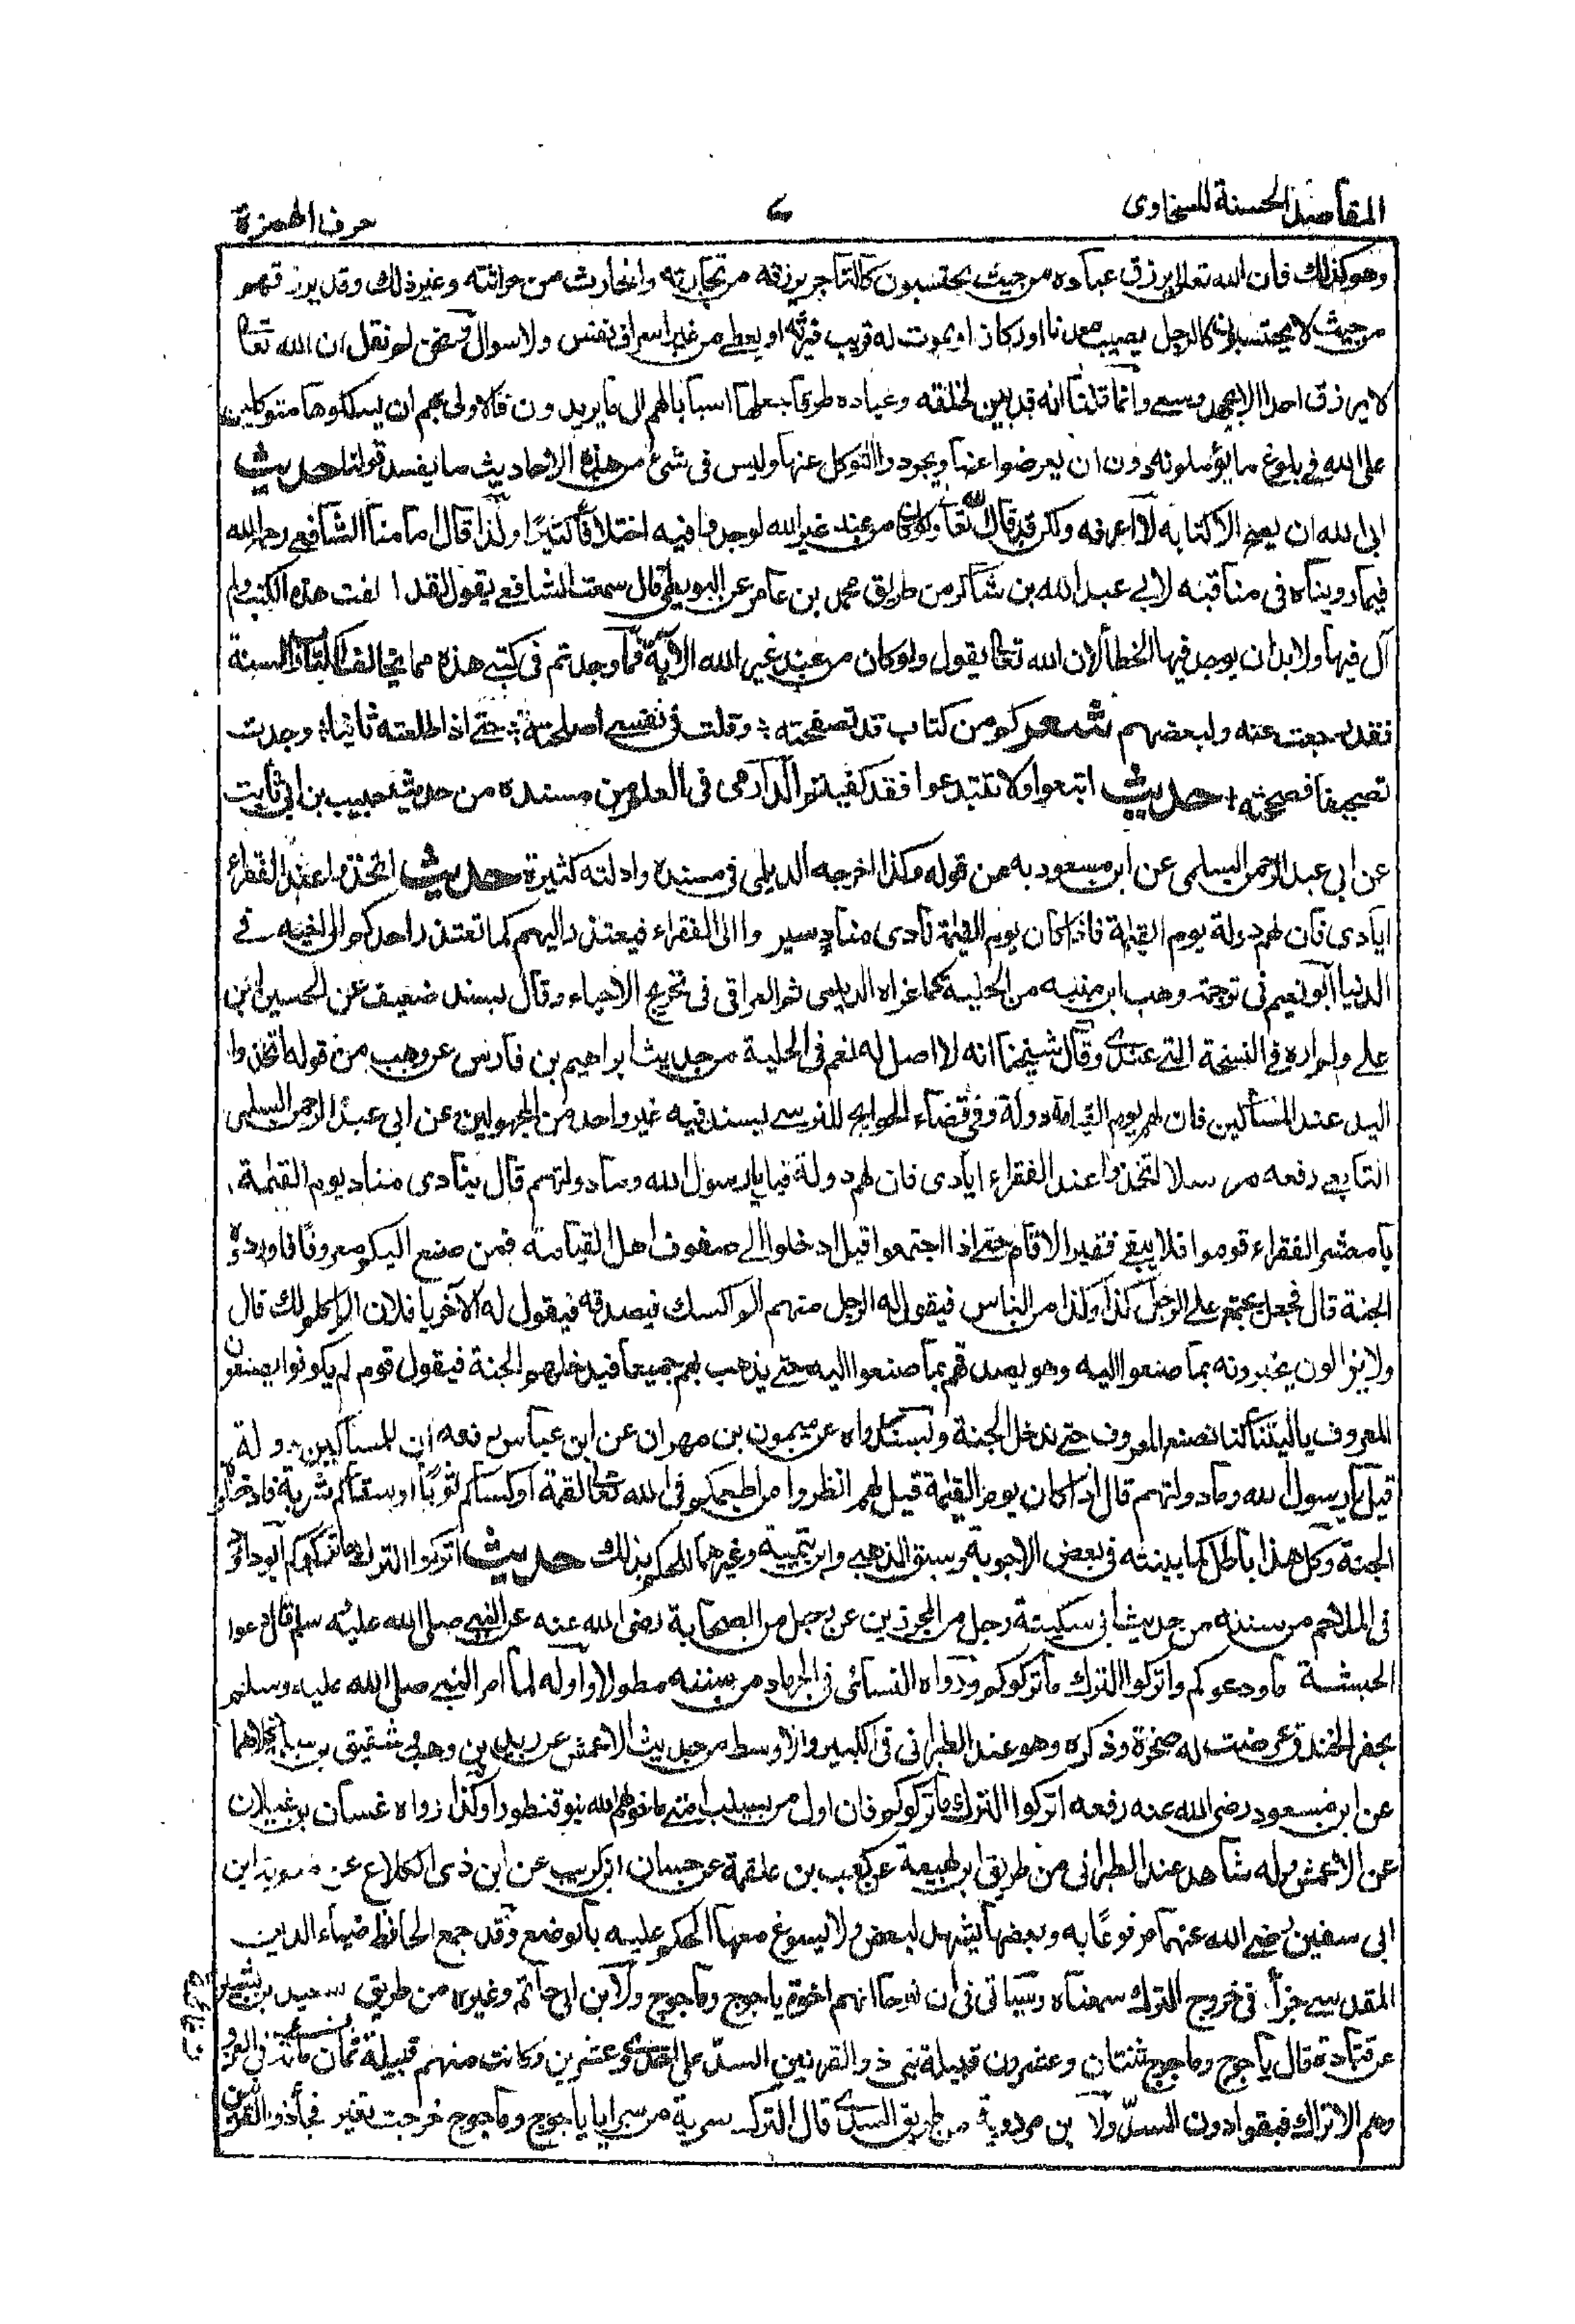 المقاصد الحسنة للسخاوى
٦
حرف الهمزة
وهو كذلك فان الله تعالى يرزق عباده من حيث يحتسبون كالتاجر يرزقه من تجارته والحارث من حراثته وغير ذلك وقد يرزقهم
من حيث لا يحتسبون كالرجل يصيب معدنا او ركازا او يموت له قريب فيرثه او يعطى من غير اسراف نفس ولا سوال ونحن لم نقل ان الله تعا
لا يرزق احدا الا بجهد وسعى وانما قلنا انه قد بين لخلقه وعباده طرقا جعلها اسبابا لهم الى ما يريدون فالاولى بهم ان يسلكوها متوكلين
على الله فى بلوغ ما يؤملونه دون ان يعرضوا عنها ويجردوا التوكل عنها وليس فى شئ من هذه الاحاديث ما يفسد قولنا حديث
ابى الله ان يصح الا كتابه لا اعرفه ولكن قد قال الله تعا ولو كان من عند غير الله لوجدوا فيه اختلافا كثيرا ولذا قال امامنا الشافعى رحمه الله
فيما رويناه فى مناقبه لابى عبد الله بن شاكر من طريق محمد بن عامر عن البويطى قال سمعت الشافعى يقول لقد الفت هذه الكتب ولم
آل فيها ولا بد ان يوجد فيها الخطأ لان الله تعا يقول ولو كان من عند غير الله الاية فما وجدتم فى كتبى هذه مما يخالف الكتاب والسنة
فقد رجعت عنه ولبعضهم شعر كم من كتاب قد تصفحته ؛ وقلت فى نفسى اصلحته ؛ حتى اذا طالعته ثانيا ؛ وجدت
تصحيفا فصححته + حديث اتبعوا ولا تبتدعوا فقد كفيتم الدارمى فى العلم من مسنده من حديث حبيب بن ابى ثابت
عن ابى عبد الرحمن السلمى عن ابن مسعود به من قوله وكذا اخرجه الديلمى فى مسنده وادلته كثيرة حديث اتخذوا عند الفقراء
ايادى فان لهم دولة يوم القيمة فاذا كان يوم القيمة نادى مناد سيروا الى الفقراء فيعتذر اليهم كما تعتذر احدكم الى اخيه فى
الدنيا ابو نعيم فى ترجمة وهب ابن منبه من الحلية كما عزاه الديلمى ثم العراقى فى تخريج الاحياء وقال بسند ضعيف عن الحسين ابن
على ولم اره فى النسخة التى عندى وقال شيخنا انه لا اصل له نعم فى الحلية من حديث ابراهيم بن فارس عن وهب من قوله اتخذوا
اليد عند المساكين فان لهم يوم القيامة دولة وفى قضاء الحوايج للنرسى بسند فيه غير واحد من المجهولين عن ابى عبد الرحمن السلمى
التابعى رفعه مرسلا اتخذوا عند الفقراء ايادى فان لهم دولة قيل يا رسول الله وما دولتهم قال ينادى مناد يوم القيمة
يا معشر الفقراء قوموا فلا يبقى فقير الا قام حتى اذا اجتمعوا قيل ادخلوا الى صفوف اهل القيامة فمن صنع اليكم معروفا فاوردوه
الجنة قال فجعل يجتمع على الرجل كذا وكذا من الناس فيقول له الرجل منهم الم اكسك فيصدقه فيقول له الآخر يا فلان الم اكلم لك قال
ولا يزالون يخبرونه بما صنعوا اليه وهو يصدقهم بما صنعوا اليه حتى يذهب بهم جميعا فيدخلهم الجنة فيقول قوم لم يكونوا يصنعون
المعروف يا ليتنا كنا نصنع المعروف حتى ندخل الجنة وبسند رواه عن ميمون بن مهران عن ابن عباس رفعه ان للمساكين دولة
قيل يا رسول الله وما دولتهم قال اذا كان يوم القيمة قيل لهم انظروا من اطعمكم فى الله تعالى لقمة او كساكم ثوبا او سقاكم شربة فادخلوا
الجنة وكل هذا باطل كما بينته فى بعض الاجوبة وسبق الذهبى وابن تيمية وغيرهما للحكم بذلك حديث اتركوا الترك ما تركوكم ابو داؤد
فى الملاحم من سننه من حديث ابى سكينة رجل من المحررين عن رجل من الصحابة رضى الله عنه عن النبى صلى الله عليه سلم قال دعوا
الحبشة ما ودعوكم واتركوا الترك ما تركوكم ورواه النسائى فى الجهاد من سننه مطولا واوله لما امر النبى صلى الله عليه وسلم
بحفر الخندق عرضت له صخرة وذكره وهو عند الطبرانى فى الكبير والاوسط من حديث الاعمش عن زيد بن وهب وشقيق بن سلمة كلاهما
عن ابن مسعود رضى الله عنه رفعه اتركوا الترك ما تركوكم فان اول من يسلب امتى ما خولهم الله بنو قنطورا وكذا رواه غسان بن غيلان
عن الاعمش وله شاهد عند الطبرانى من طريق ابن لهيعة عن كعب بن علقمة عن حسان ابن كريب عن ابن ذى الكلاع عن معوية ابن
ابى سفين رضى الله عنهما مرفوعا به وبعضها يشهد لبعض ولا يسوغ معها الحكم عليه بالوضع وقد جمع الحافظ ضياء الدين
المقدسى جزأ فى خروج الترك سمعناه وسياتى فى ان نوحا انهم اخوة ياجوج وماجوج ولابن ابى حاتم وغيره من طريق سعيد بن بشير
عن قتادة قال ياجوج وماجوج ثنتان وعشرون قبيلة بنى ذو القرنين السد على احدى وعشرين وكانت منهم قبيلة غائبة فى الغزو
وهم الاتراك فبقوا دون السد ولابن مردوية من طريق السدى قال الترك سرية من سرايا ياجوج وماجوج خرجت تغير فجاء ذو القرنين